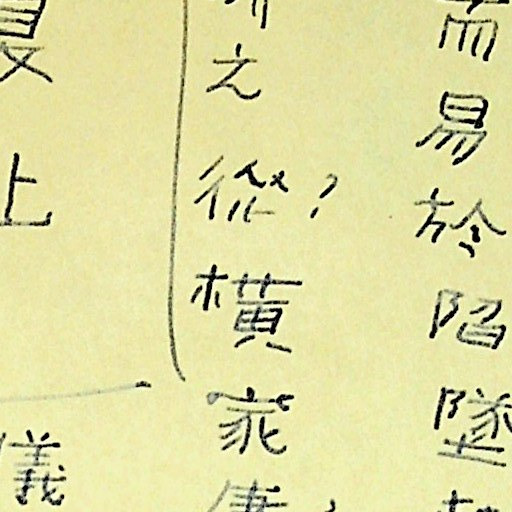 而易於陷墜
之從?橫家
上
儀